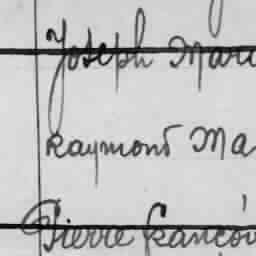 Joseph Mari
Raymond Ma
Pierre Françoi